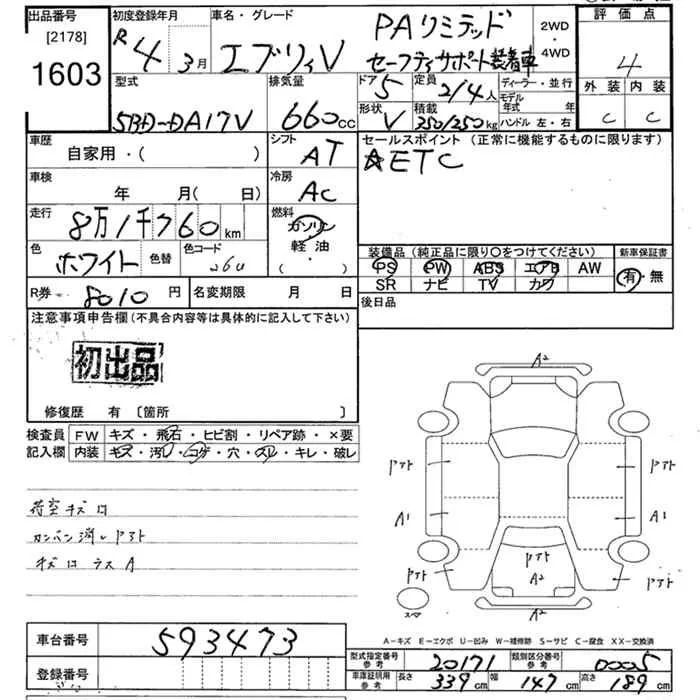 出品番号 初度登録年月 車名・グレード 評価点
[2178] R 4年 3月 エブリィV PAリミテッド 2WD・4WD 4
1603 セーフティサポート装着車
型式 排気量 ドア 5 定員 2/4人 ディーラー・並行 外装 内装
5BD-DA17V 660cc 形状 V 積載 350/250kg モデル年式 年 ハンドル 左・右 C C
車歴 シフト セールスポイント(正常に機能するものに限ります)
自家用・( ) AT ☆ETC
車検 冷房
年 月( 日) AC
走行 燃料
8万1千760km ガソリン
色 色替 色コード 軽油 装備品(純正品に限り○をつけてください) 新車保証書
ホワイト 26U ( ) PS PW ABS エアB AW 有・無
SR ナビ TV カワ
R券 8010円 名変期限 月 日 後日品
注意事項申告欄(不具合内容等は具体的に記入して下さい)
初出品
修復歴 有 〔箇所 〕
検査員 FW キズ・飛石・ヒビ割・リペア跡・×要
記入欄 内装 キズ・汚レ・コゲ・穴・スレ・キレ・破レ
荷室キズ口
カンバン消しアト
キズ口 ラス A
A2
アト アト
A1 A1
アト
アト A2 アト
スペア
A2
A-キズ E-エクボ U-凹み W-補修跡 S-サビ C-腐食 XX-交換済
車台番号 593473
登録番号
型式指定番号 参考 20171 類別区分番号 参考 0005
車庫証明用 参考 長さ 339cm 幅 147cm 高さ 189cm